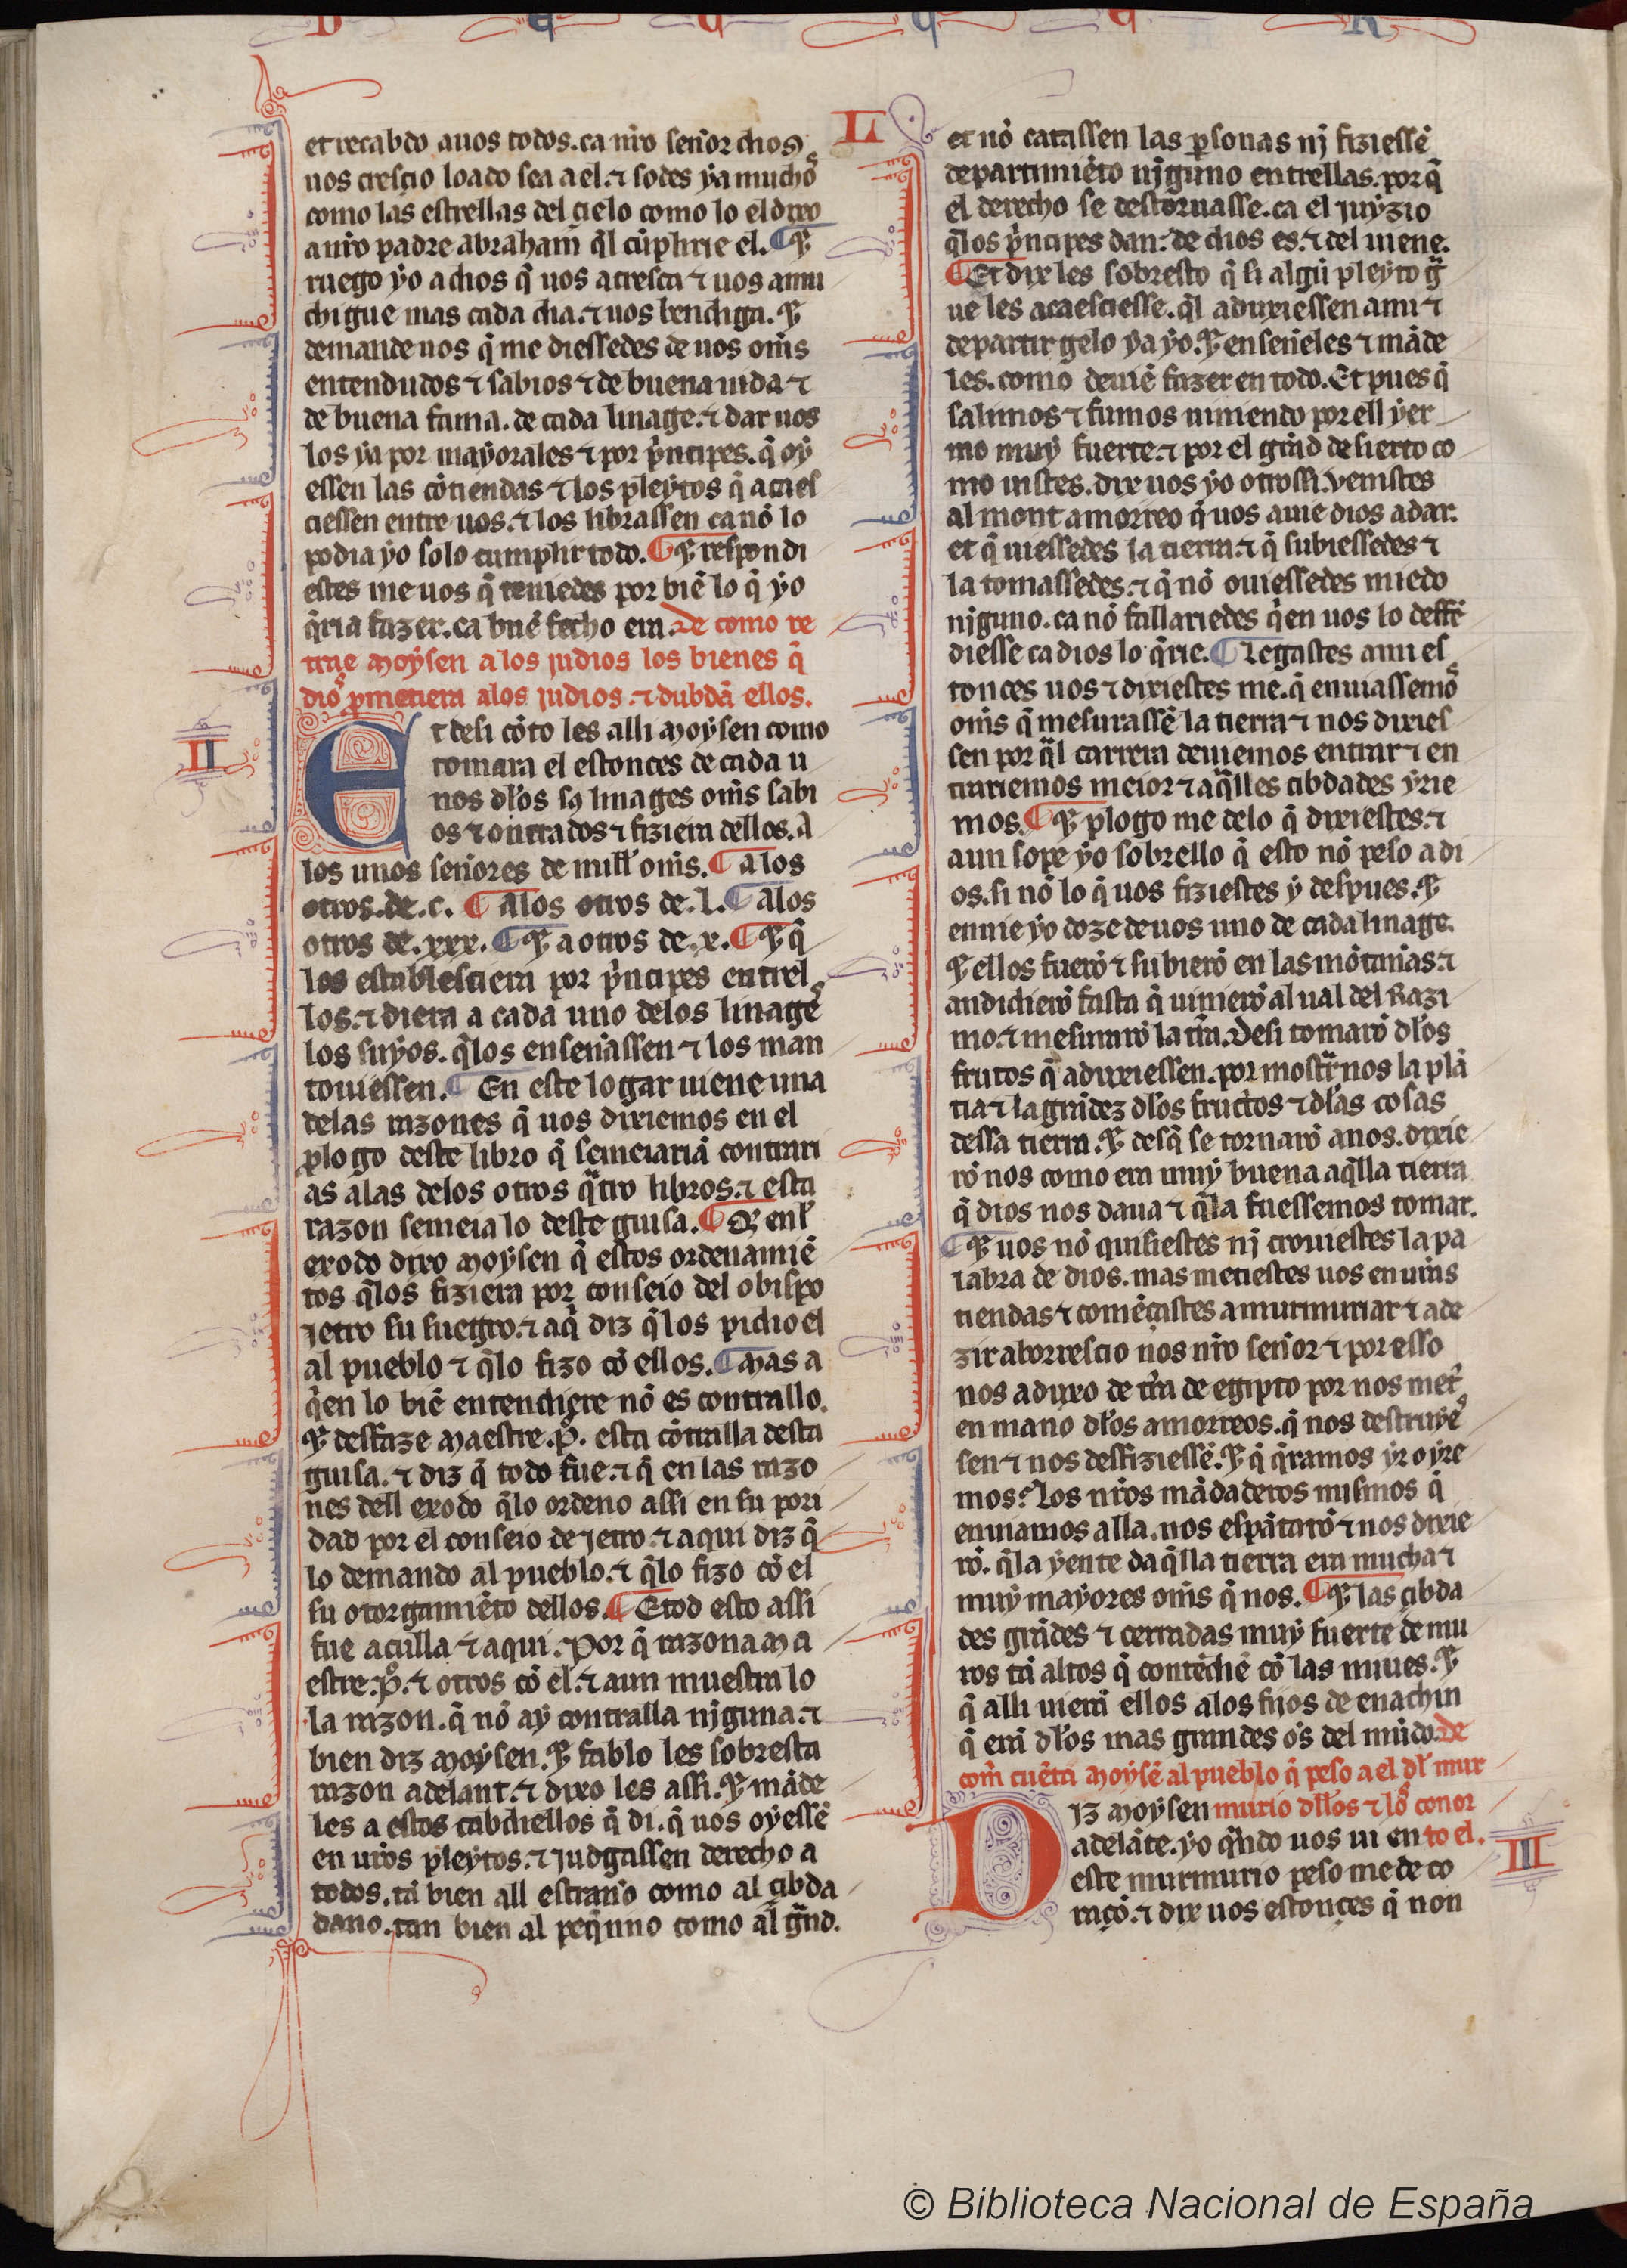 et recabdo auos todos. ca nr̃o sennor dios
uos crescio loado sea a el. ⁊ sodes ya muchos
como las estrellas del çielo como lo el dixo
a nr̃o padre abraham q̃l cũplirie el. ¶ Et
ruego yo a dios q̃ uos acresca ⁊ uos amu
chigue mas cada dia. ⁊ uos bendiga. Et
demande uos q̃ me diessedes de uos om̃s
entendudos ⁊ sabios ⁊ de buena uida ⁊
de buena fama. de cada linage. ⁊ dar uos
los ya por mayorales ⁊ por p̃ncipes. q̃ oy
essen las cõtiendas ⁊ los pleytos q̃ acaes
ciessen entre uos. ⁊ los librassen ca nõ lo
podia yo solo cumplir todo. ¶ Et respondi
estes me uos q̃ teniedes por biẽ lo q̃ yo
q̃ria fazer. ca buẽ fecho era. De como re
trae Moysen a los judios los bienes q̃
dios p̃metiera alos judios. ⁊ dubdã ellos.
II
Et desi cõto les alli Moysen como
tomara el estonces de cada u
nos dl̃os sos linages om̃s sabi
os ⁊ onrrados ⁊ fiziera dellos. A
los unos sennores de mill om̃s. ¶ A los
otros. de. c. ¶ A los otros de. l. ¶ A los
otros de. xxx. ¶ Et a otros de. x. ¶ Et q̃
los establesciera por p̃ncipes entrel
los. ⁊ diera a cada uno delos linages
los suyos. q̃los ensennassen ⁊ los man
touiessen. ¶ En este logar uiene una
delas razones q̃ uos dixiemos en el
p̃logo deste libro q̃ semeiariã contrari
as alas delos otros q̃tro libros. ⁊ esta
razon semeia lo deste guisa. ¶ Et enl̃
exodo dixo Moysen q̃ estos ordenamiẽ
tos q̃los fiziera por conseio del obispo
Jetro su suegro. ⁊ aq̃ diz q̃los pidio el
al pueblo ⁊ q̃lo fizo cõ ellos. ¶ Mas a
q̃en lo biẽ entendiere nõ es contrallo.
Et desfaze Maestre. P. esta cõtralla desta
guisa. ⁊ diz q̃ todo fue. ⁊ q̃ en las razo
nes dell exodo q̃lo ordeno assi en su pori
dad por el conseio de Jetro. ⁊ aqui diz q̃
lo demando al pueblo. ⁊ q̃lo fizo cõ el
su otorgamiẽto dellos. ¶ E tod esto assi
fue aculla ⁊ aqui. Por q̃ razona Ma
estre. P. ⁊ otros cõ el. ⁊ aun muestra lo
la razon. q̃ nõ ay contralla njguna. ⁊
bien diz Moysen. Et fablo les sobresta
razon adelant. ⁊ dixo les assi. Et mãde
les a estos cabdiellos q̃ di. q̃ uos oyessẽ
en ur̃os pleytos. ⁊ judgassen derecho a
todos. tã bien all estranno como al çibda
dano. tan bien al peq̃nno como al g̃nd.
L
et nõ catassen las p̃sonas nj fiziessẽ
departimiẽto njguno entrellas. por q̃
el derecho se destoruasse. ca el juyzio
q̃los p̃ncipes dan: de dios es. ⁊ del uiene.
¶ Et dix les sobresto q̃ si algũ pleyto g̃
ue les acaesciesse. q̃l aduxiessen a mi ⁊
departir gelo ya yo. Et ensenneles ⁊ mãde
les. como deuiẽ fazer en todo. Et pues q̃
salimos ⁊ fumos uiniendo por ell yer
mo muy fuerte. ⁊ por el grãd desierto co
mo uistes. dix uos yo otrossi. Venistes
al mont amorreo q̃ uos auie dios a dar.
et q̃ uiessedes la tierra. ⁊ q̃ subiessedes ⁊
la tomassedes. ⁊ q̃ nõ ouiessedes miedo
njguno. ca nõ fallariedes q̃en uos lo deffẽ
diesse ca dios lo q̃rie. ¶ Legastes a mi es
tonces uos ⁊ dixiestes me. q̃ enuiassemos
om̃s q̃ mesurassẽ la tierra ⁊ nos dixies
sen por q̃l carrera deuiemos entrar ⁊ en
trariemos meior ⁊ a q̃lles cibdades yrie
mos. ¶ Et plogo me delo q̃ dixiestes. ⁊
aun sope yo sobrello q̃ esto nõ peso a di
os. si nõ lo q̃ uos fiziestes y despues. Et
enuie yo doze de uos uno de cada linage.
Et ellos fuerõ ⁊ subierõ en las mõtannas. ⁊
andidierõ fasta q̃ uinierõ al ual del Razi
mo. ⁊ mesurarõ la tr̃ra. Desi tomarõ dl̃os
frutos q̃ aduxiessen. por mostr̃ nos la plã
tia ⁊ la grãdez dl̃os fructos ⁊ dl̃as cosas
dessa tierra. Et desq̃ se tornarõ a nos. dixie
rõ nos como era muy buena aq̃lla tierra
q̃ dios nos daua ⁊ q̃la fuessemos tomar.
¶ Et uos nõ quisiestes nj crouiestes la pa
labra de dios. mas metiestes uos en ur̃as
tiendas ⁊ comẽçastes a murmuriar ⁊ a de
zir aborrescio nos nr̃o sennor ⁊ por esso
nos aduxo de tr̃ra de egipto por nos met̃
en mano dl̃os amorreos. q̃ nos destruyes
sen ⁊ nos desfiziessẽ. Et q̃ q̃ramos yr o yre
mos? Los nr̃os mãdaderos mismos q̃
enuiamos alla. nos espãtarõ ⁊ nos dixie
rõ. q̃la yente daq̃lla tierra era mucha ⁊
muy mayores om̃s q̃ nos. ¶ Et las çibda
des grãdes ⁊ cerradas muy fuerte de mu
ros tã altos q̃ contẽdiẽ cõ las nuues. Et
q̃ alli uierã ellos alos fijos de enachin
q̃ erã dl̃os mas grandes om̃s del mũdo. De
com̃ cuẽta Moysẽ al pueblo q̃ peso a el dl̃ mur
Diz Moysen murio dl̃los ⁊ los conor
adelãte. yo q̃ndo uos ui en to el.
III
este murmurio peso me de co
raçõ. ⁊ dix uos estonçes q̃ non
© Biblioteca Nacional de España